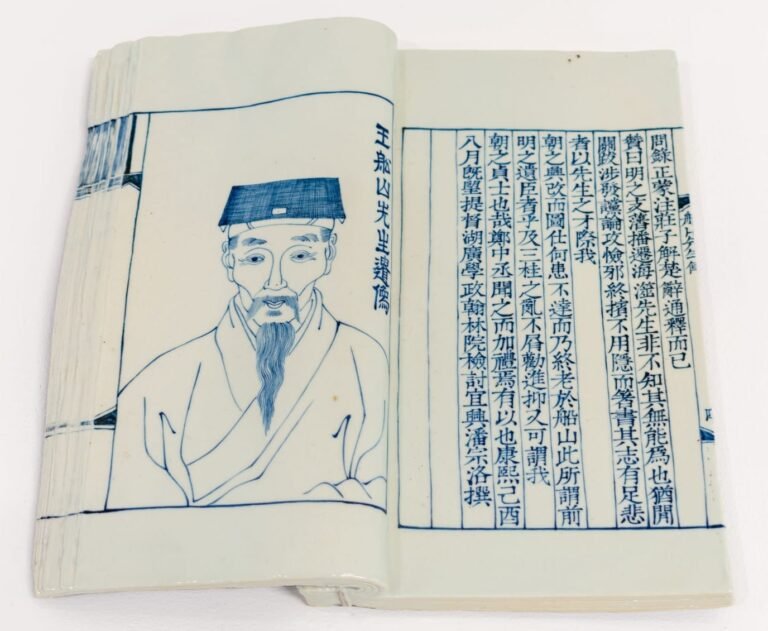 問錄正蒙注莊子解楚辭通釋而已
贊曰明之支藩播遷海澨先生非不知其無能為也猶閒
關跋涉發讜論攻憸邪終擯不用隱而著書其志有足悲
者以先生之才際我
朝之興改而圖仕何患不達而乃終老於船山此所謂前
明之遺臣者乎及三桂之亂不屑勸進抑又可謂我
朝之貞士也哉鄭中丞聞之而加禮焉有以也康熙己酉
八月既望提督湖廣學政翰林院檢討宜興潘宗洛撰
王船山先生遺像